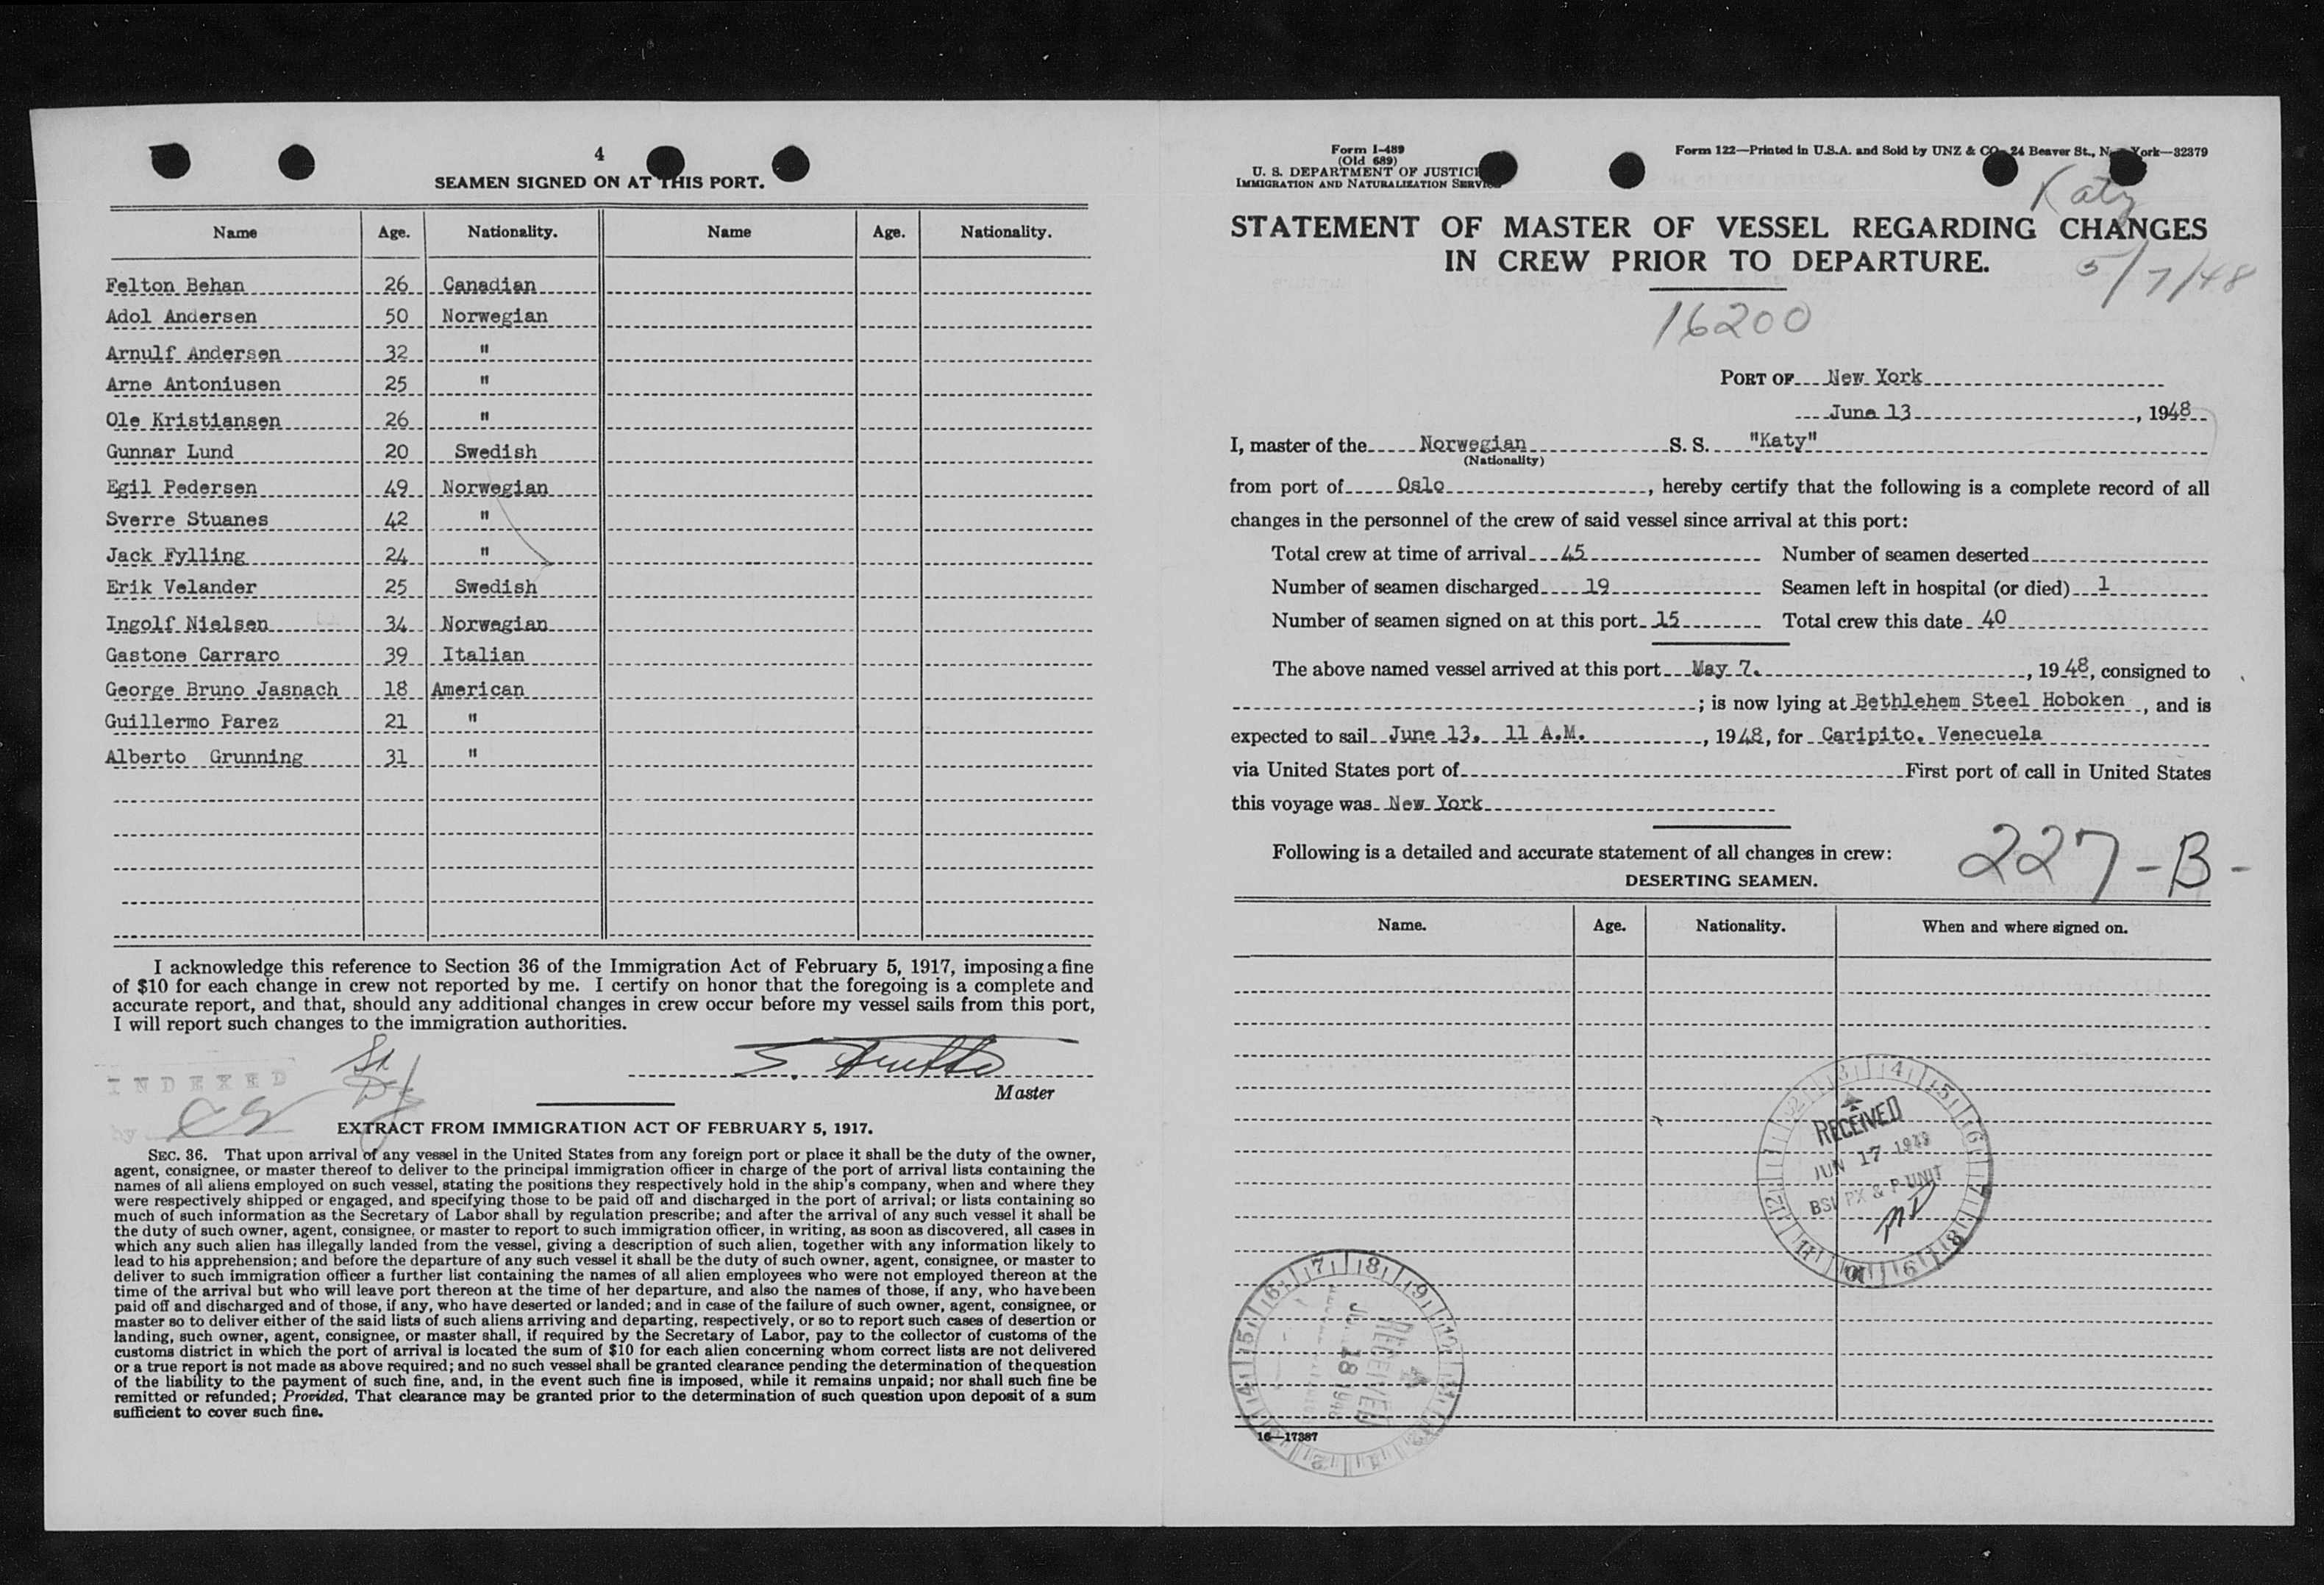 4
SEAMEN SIGNED ON AT THIS PORT.
Name Age. Nationality. Name Age. Nationality.
Felton Behan 26 Canadian
Adol Andersen 50 Norwegian
Arnulf Andersen 32 "
Arne Antoniusen 25 "
Ole Kristiansen 26 "
Gunnar Lund 20 Swedish
Egil Pedersen 49 Norwegian
Sverre Stuanes 42 "
Jack Fylling 24 "
Erik Velander 25 Swedish
Ingolf Nielsen 34 Norwegian
Gastone Carraro 39 Italian
George Bruno Jasnach 18 American
Guillermo Parez 21 "
Alberto Grunning 31 "
I acknowledge this reference to Section 36 of the Immigration Act of February 5, 1917, imposing a fine
of $10 for each change in crew not reported by me. I certify on honor that the foregoing is a complete and
accurate report, and that, should any additional changes in crew occur before my vessel sails from this port,
I will report such changes to the immigration authorities.
INDEXED
by
Master
EXTRACT FROM IMMIGRATION ACT OF FEBRUARY 5, 1917.
SEC. 36. That upon arrival of any vessel in the United States from any foreign port or place it shall be the duty of the owner,
agent, consignee, or master thereof to deliver to the principal immigration officer in charge of the port of arrival lists containing the
names of all aliens employed on such vessel, stating the positions they respectively hold in the ship's company, when and where they
were respectively shipped or engaged, and specifying those to be paid off and discharged in the port of arrival; or lists containing so
much of such information as the Secretary of Labor shall by regulation prescribe; and after the arrival of any such vessel it shall be
the duty of such owner, agent, consignee, or master to report to such immigration officer, in writing, as soon as discovered, all cases in
which any such alien has illegally landed from the vessel, giving a description of such alien, together with any information likely to
lead to his apprehension; and before the departure of any such vessel it shall be the duty of such owner, agent, consignee, or master to
deliver to such immigration officer a further list containing the names of all alien employees who were not employed thereon at the
time of the arrival but who will leave port thereon at the time of her departure, and also the names of those, if any, who have been
paid off and discharged and of those, if any, who have deserted or landed; and in case of the failure of such owner, agent, consignee, or
master so to deliver either of the said lists of such aliens arriving and departing, respectively, or so to report such cases of desertion or
landing, such owner, agent, consignee, or master shall, if required by the Secretary of Labor, pay to the collector of customs of the
customs district in which the port of arrival is located the sum of $10 for each alien concerning whom correct lists are not delivered
or a true report is not made as above required; and no such vessel shall be granted clearance pending the determination of the question
of the liability to the payment of such fine, and, in the event such fine is imposed, while it remains unpaid; nor shall such fine be
remitted or refunded; Provided, That clearance may be granted prior to the determination of such question upon deposit of a sum
sufficient to cover such fine.
Form I-489
(Old 689)
U. S. DEPARTMENT OF JUSTICE
IMMIGRATION AND NATURALIZATION SERVICE
Form 122—Printed in U.S.A. and Sold by UNZ & CO., 24 Beaver St., New York—32379
Katy
STATEMENT OF MASTER OF VESSEL REGARDING CHANGES
IN CREW PRIOR TO DEPARTURE.
5/7/48
16200
PORT OF New York
June 13, 1948
I, master of the Norwegian S. S. "Katy"
(Nationality)
from port of Oslo, hereby certify that the following is a complete record of all
changes in the personnel of the crew of said vessel since arrival at this port:
Total crew at time of arrival 45 Number of seamen deserted
Number of seamen discharged 19 Seamen left in hospital (or died) 1
Number of seamen signed on at this port 15 Total crew this date 40
The above named vessel arrived at this port May 7. , 1948, consigned to
; is now lying at Bethlehem Steel Hoboken, and is
expected to sail June 13, 11 A.M. , 1948, for Caripito, Venecuela
via United States port of First port of call in United States
this voyage was New York
Following is a detailed and accurate statement of all changes in crew:
227-B-
DESERTING SEAMEN.
Name. Age. Nationality. When and where signed on.
RECEIVED
JUN 17 1948
BSI PX & P-UNIT
RECEIVED
18 1948
16—17387